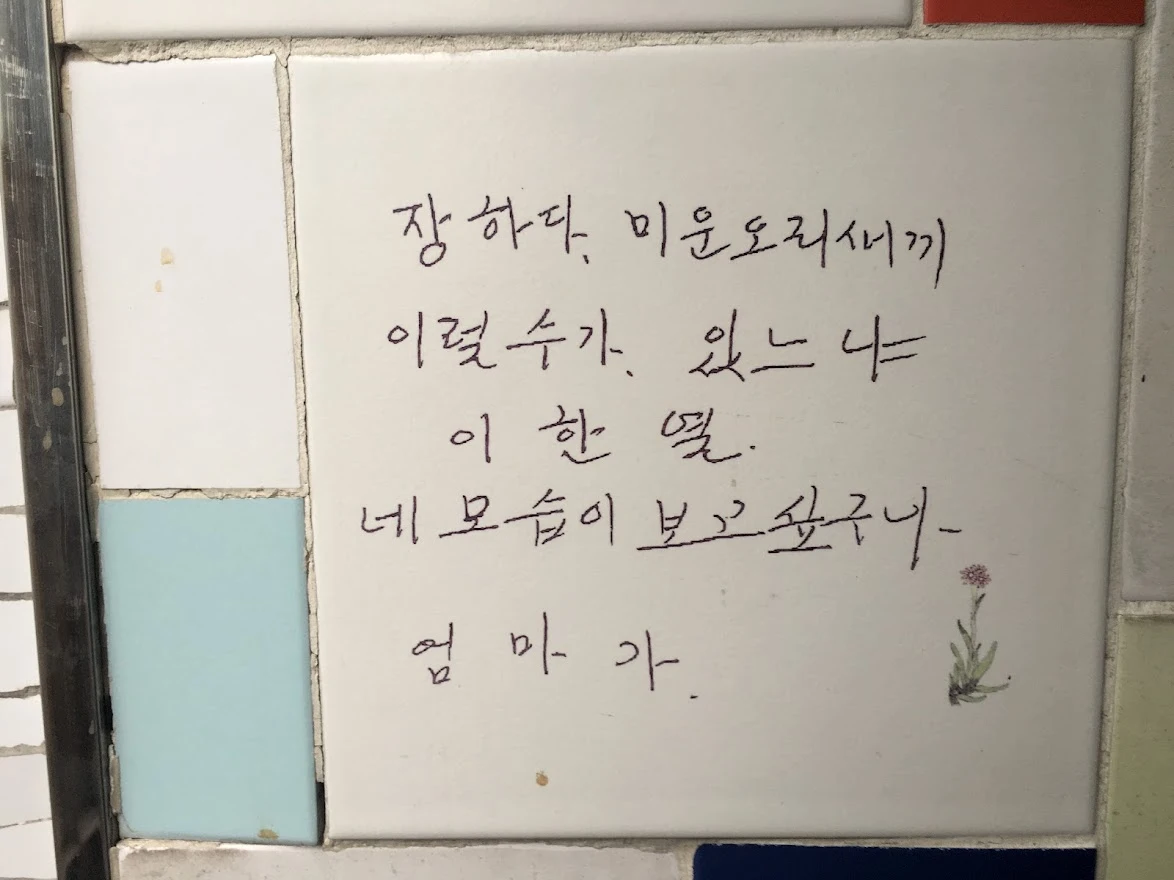 장하다. 미운오리새끼
이럴수가. 있느냐
이 한 열.
네 모습이 보고싶구나
엄 마 가.